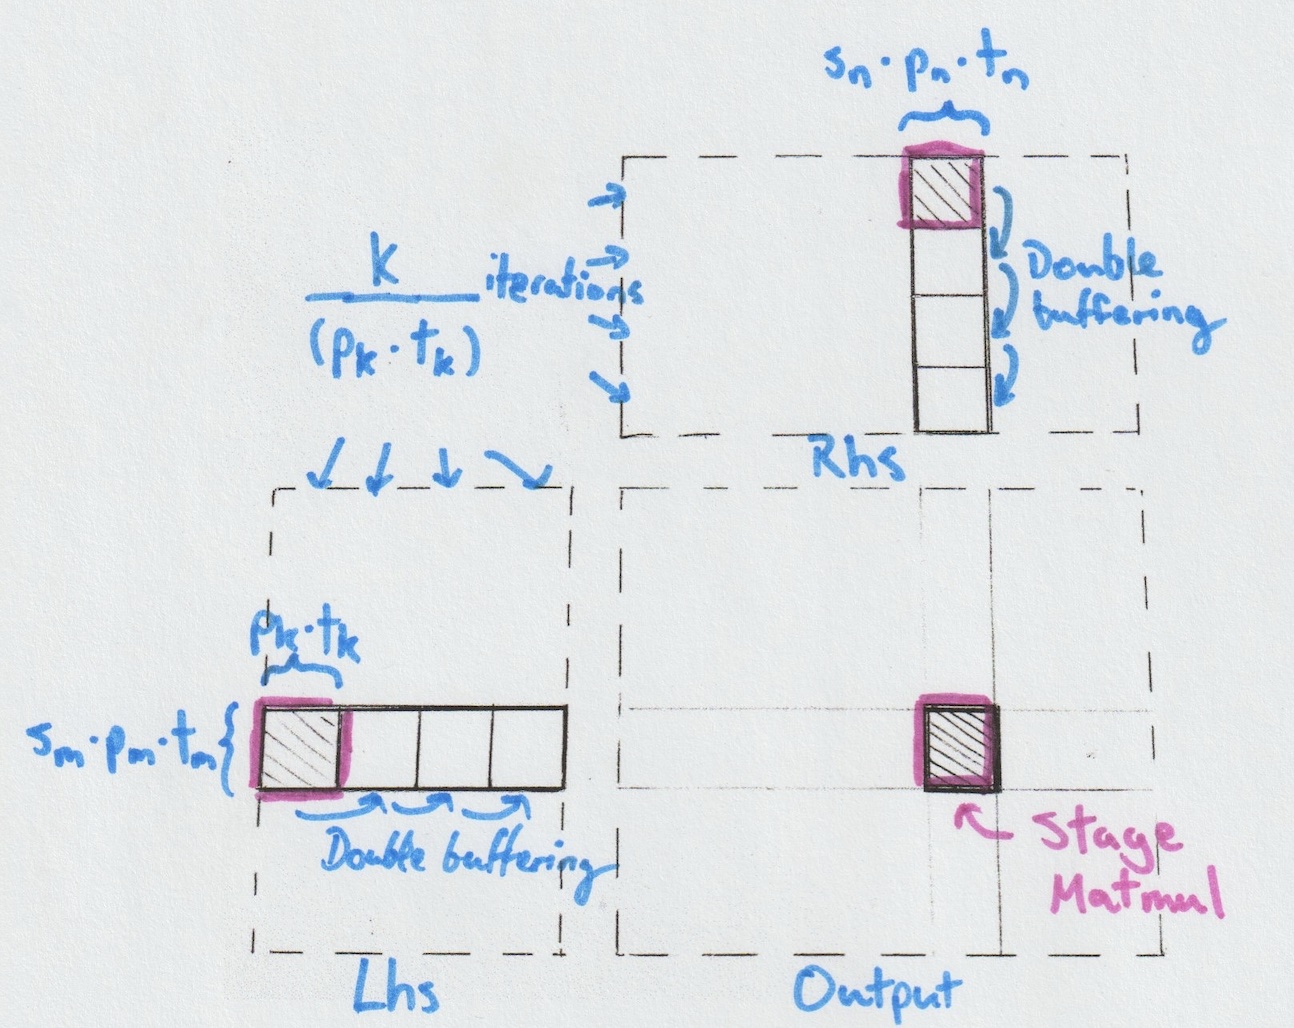 sₙ·pₙ·tₙ
k
(pₖ·tₖ)
iterations
Double
buffering
Rhs
pₖ·tₖ
sₘ·pₘ·tₘ
Double buffering
Stage
Matmul
Lhs
Output